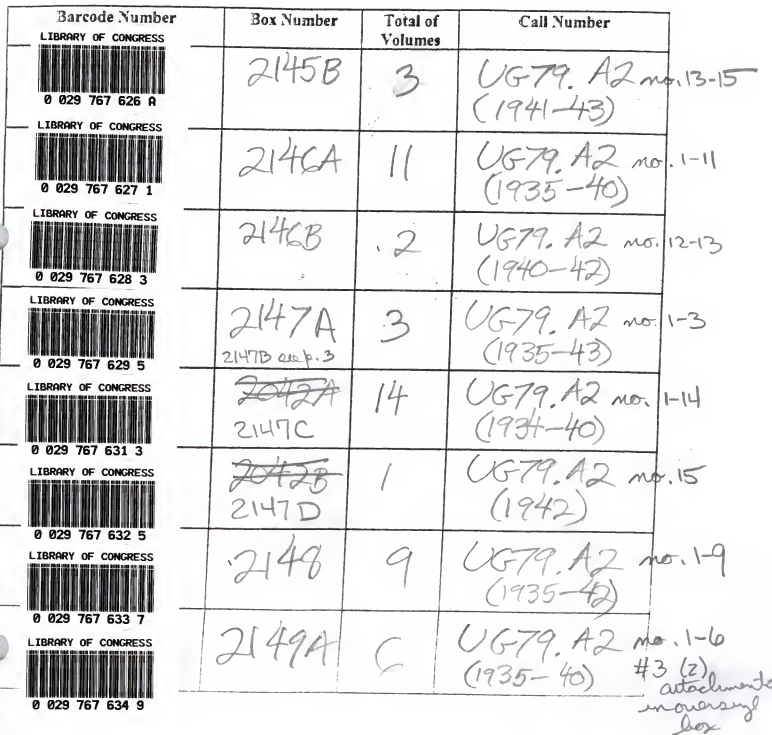 Barcode Number Box Number Total of Volumes Call Number
LIBRARY OF CONGRESS
0 029 767 626 A
2145B 3 UG79. A2 no. 13-15
(1941-43)
LIBRARY OF CONGRESS
0 029 767 627 1
2146A 11 UG79. A2 no. 1-11
(1935-40)
LIBRARY OF CONGRESS
0 029 767 628 3
2146B 2 UG79. A2 no. 12-13
(1940-42)
LIBRARY OF CONGRESS
0 029 767 629 5
2147A 3 UG79. A2 no. 1-3
2147B see p. 3 (1935-43)
LIBRARY OF CONGRESS
0 029 767 631 3
2042A 14 UG79. A2 no. 1-14
2147C (1934-40)
LIBRARY OF CONGRESS
0 029 767 632 5
2042B 1 UG79. A2 no. 15
2147D (1942)
LIBRARY OF CONGRESS
0 029 767 633 7
2148 9 UG79. A2 no. 1-9
(1935-42)
LIBRARY OF CONGRESS
0 029 767 634 9
2149A 6 UG79. A2 no. 1-6
(1935-40) #3 (2)
attachments
in oversize
box